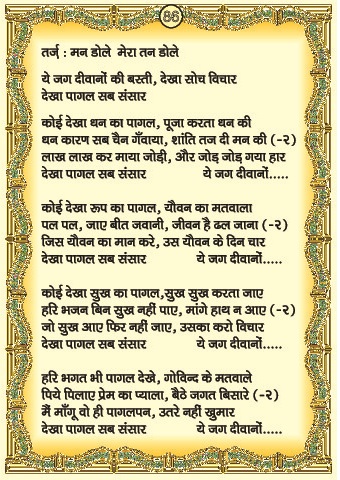 86
तर्ज् : मन डोले मेरा तन डोले
ये जग दीवानों की बस्ती, देखा सोच विचार
देखा पागल सब संसार
कोई देखा धन का पागल, पूजा करता धन की
धन कारण सब चैन गँवाया, शांति तज दी मन की (-२)
लाख लाख कर माया जोड़ी, और जोड़ जोड़ गया हार
देखा पागल सब संसार ये जग दीवानों.....
कोई देखा रूप का पागल, यौवन का मतवाला
पल पल, जाए बीत जवानी, जीवन है ढल जाना (-२)
जिस यौवन का मान करे, उस यौवन के दिन चार
देखा पागल सब संसार ये जग दीवानों.....
कोई देखा सुख का पागल,सुख सुख करता जाए
हरि भजन बिन सुख नहीं पाए, मांगे हाथ न आए (-२)
जो सुख आए फिर नहीं जाए, उसका करो विचार
देखा पागल सब संसार ये जग दीवानों.....
हरि भगत भी पागल देखे, गोविन्द के मतवाले
पिये पिलाए प्रेम का प्याला, बैठे जगत बिसारे (-२)
मैं माँगू वो ही पागलपन, उतरे नहीं खुमार
देखा पागल सब संसार ये जग दीवानों.....